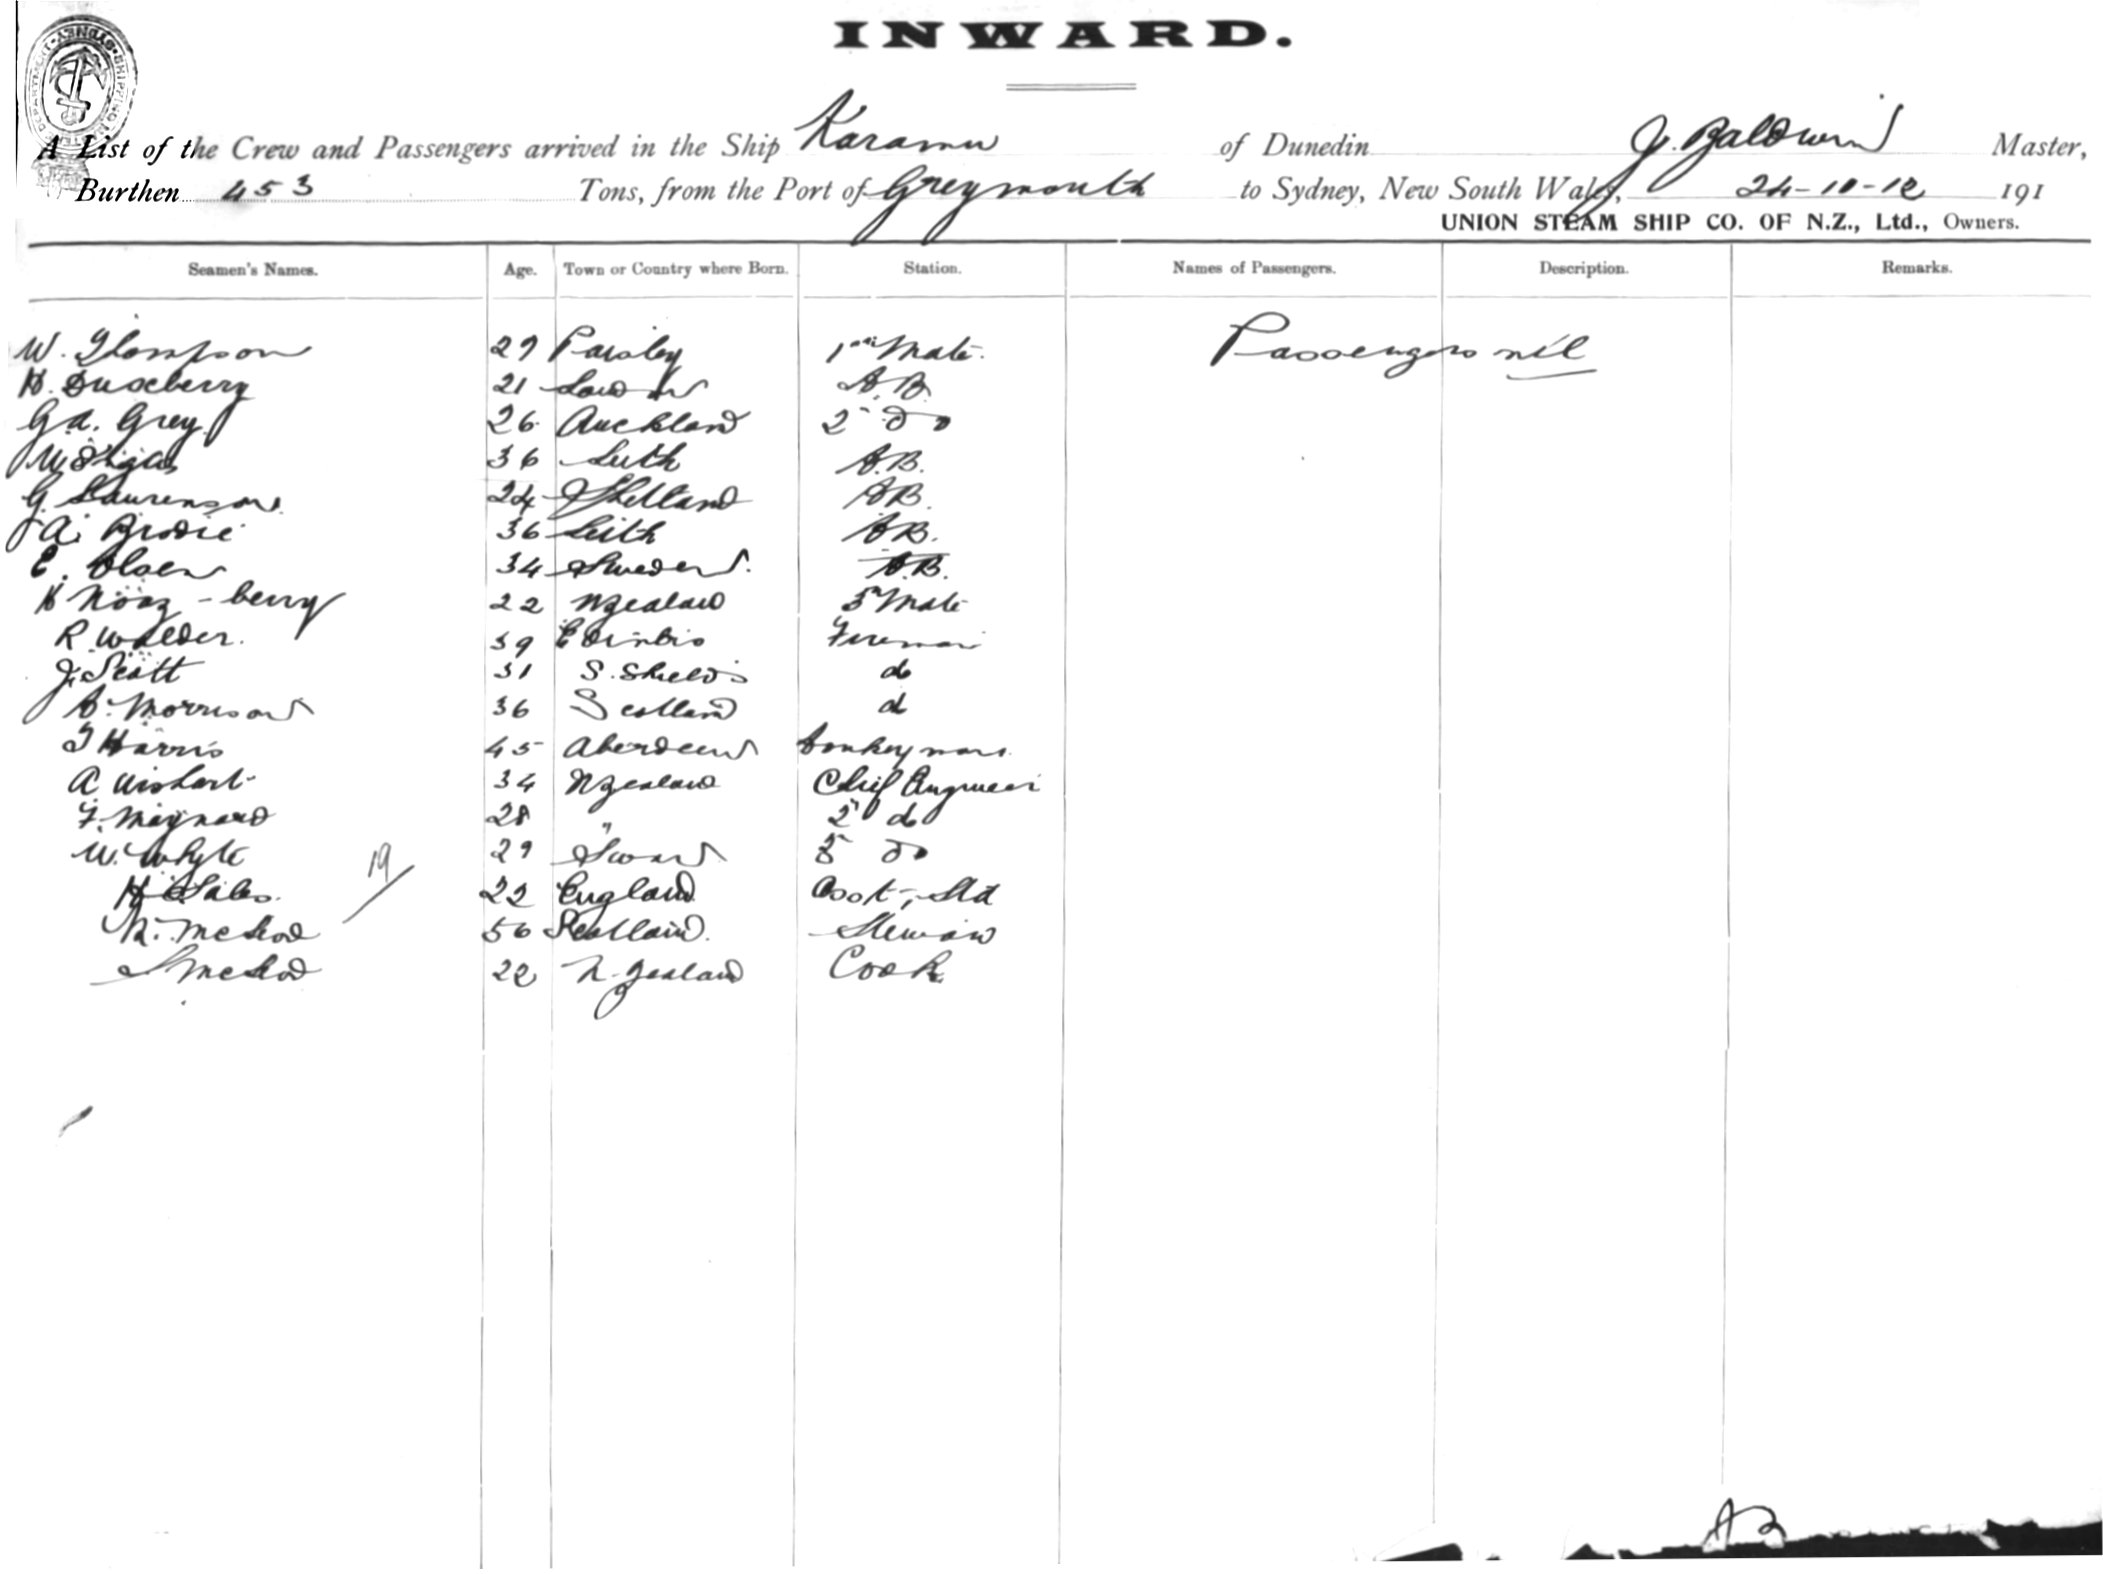 INWARD.
A List of the Crew and Passengers arrived in the Ship Karamu of Dunedin J. Baldwin Master,
Burthen 453 Tons, from the Port of Greymouth to Sydney, New South Wales, 24-10-12 191
UNION STEAM SHIP CO. OF N.Z., Ltd., Owners.
Seamen's Names. Age. Town or Country where Born. Station. Names of Passengers. Description. Remarks.
W. Thompson 29 Paisley 1st Mate. Passengers nil
H. Duxberry 21 A.B.
G A. Grey 26 Auckland 2 do
36 Leith A.B.
G. Laurenson 24 Shetland AB.
A. Brodie 36 Leith AB.
E. Olsen 34 Sweden. A.B.
H berry 22 NZealand 3 Mate
R. Walder. 39 Edinbro Fireman
J. Scott 31 S. Shields do
A. Morrison 36 Scotland d
T Harris 45 Aberdeen Donkeyman
A Wishart 34 NZealand Chief Engineer
F. Maynard 28 " 2 do
W. Whyte 29 3 do
19
H Sales. 22 England Cook, Std
R. McLeod 56 Scotland. Steward
McLeod 22 N. Zealand Cook